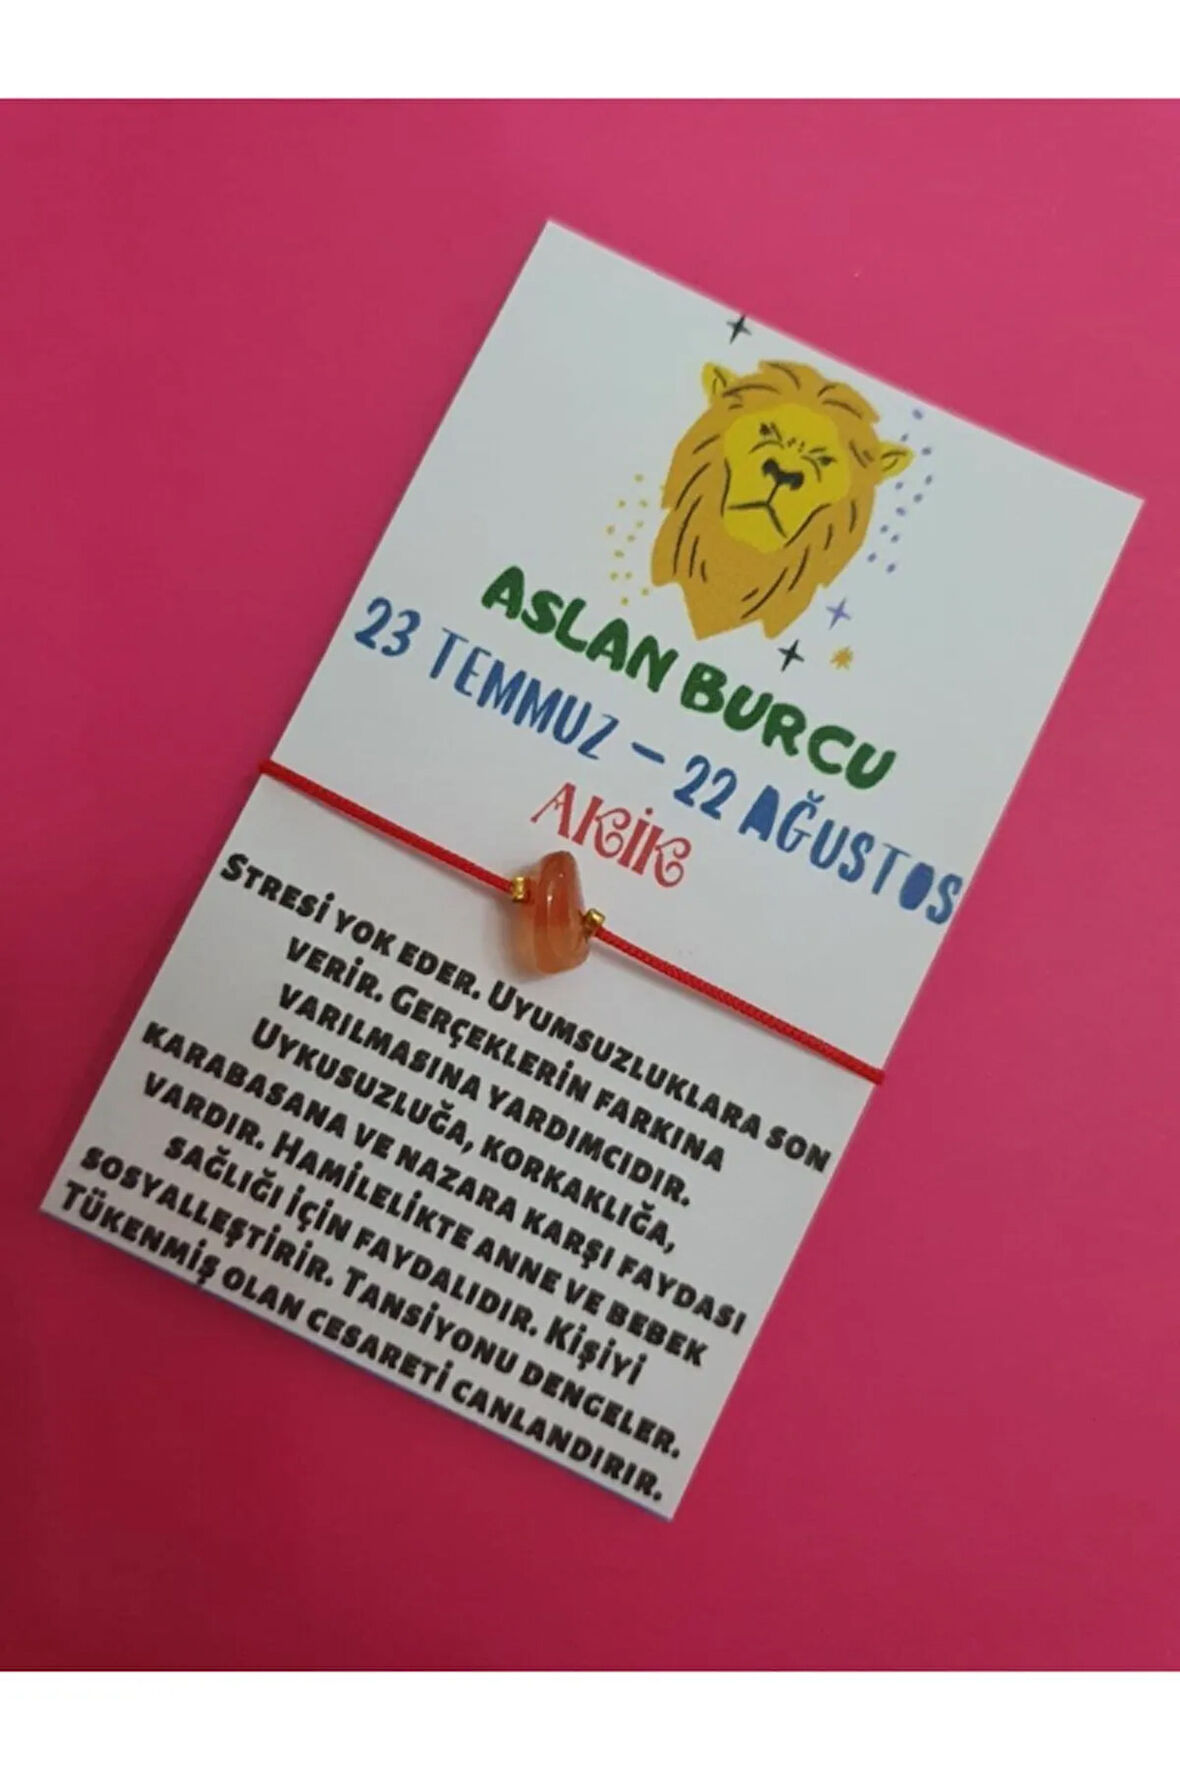 ASLAN BURCU
23 TEMMUZ - 22 AĞUSTOS
AKİK
STRESİ YOK EDER. UYUMSUZLUKLARA SON
VERİR. GERÇEKLERİN FARKINA
VARILMASINA YARDIMCIDIR.
UYKUSUZLUĞA, KORKAKLIĞA,
KARABASANA VE NAZARA KARŞI FAYDASI
VARDIR. HAMİLELİKTE ANNE VE BEBEK
SAĞLIĞI İÇİN FAYDALIDIR. KİŞİYİ
SOSYALLEŞTİRİR. TANSİYONU DENGELER.
TÜKENMİŞ OLAN CESARETİ CANLANDIRIR.